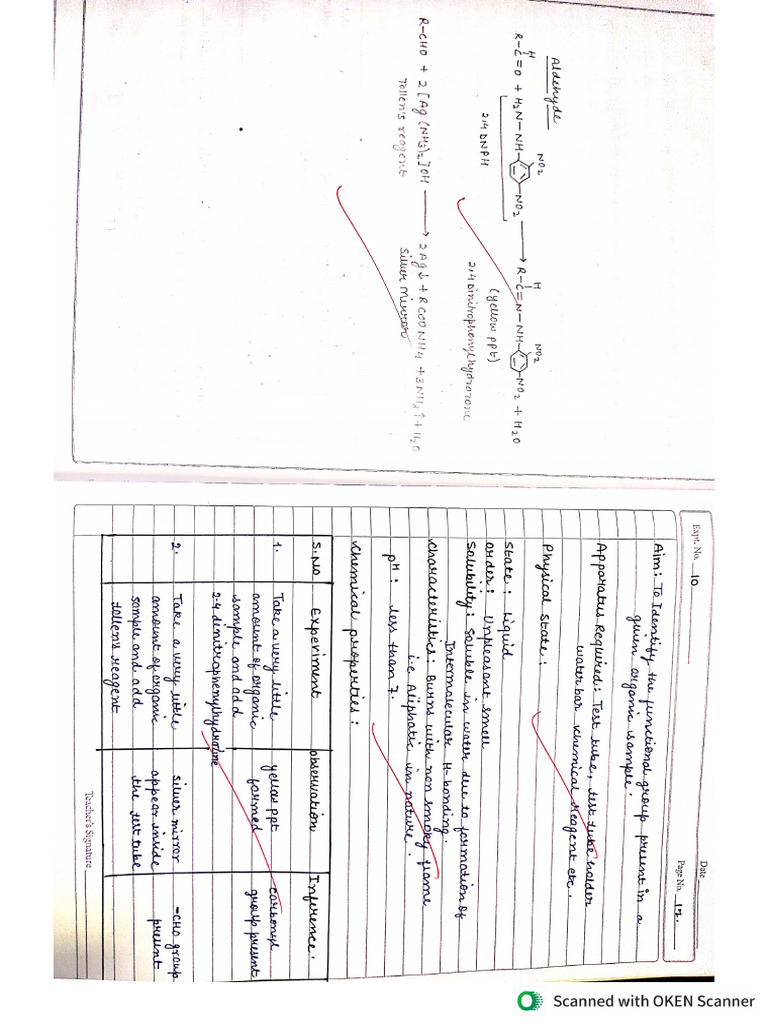 Aldehyde
H NO2 H NO2
R-C=O + H2N-NH- -NO2 → R-C=N-NH- -NO2 + H2O
2,4 DNPH (yellow ppt)
2,4 Dinitrophenylhydrozone
R-CHO + 2[Ag(NH3)2]OH → 2Ag↓ + RCOONH4 + 3NH3↑ + H2O
Tollen's reagent Silver mirror
Date
Expt. No. 10 Page No. 17.
Aim: To Identify the functional group present in a
given organic sample.
Apparatus Required: Test tube, test tube holder
water bar chemical reagent etc.
Physical State:
State: Liquid
order: Unpleasant smell
Solubility: Soluble in water due to formation of
Intermolecular H-bonding.
Characteristics: Burns with non smoky flame
i.e Aliphatic in nature.
pH: less than 7.
Chemical properties:
S.NO Experiment observation Inference.
1. Take a very little yellow ppt carbonyl
amount of organic formed group present
sample and add
2-4 dinitrophenylhydrazine
2. Take a very little silver mirror -CHO group
amount of organic appear inside present
sample and add the test tube
tollen's reagent
Teacher's Signature
Scanned with OKEN Scanner